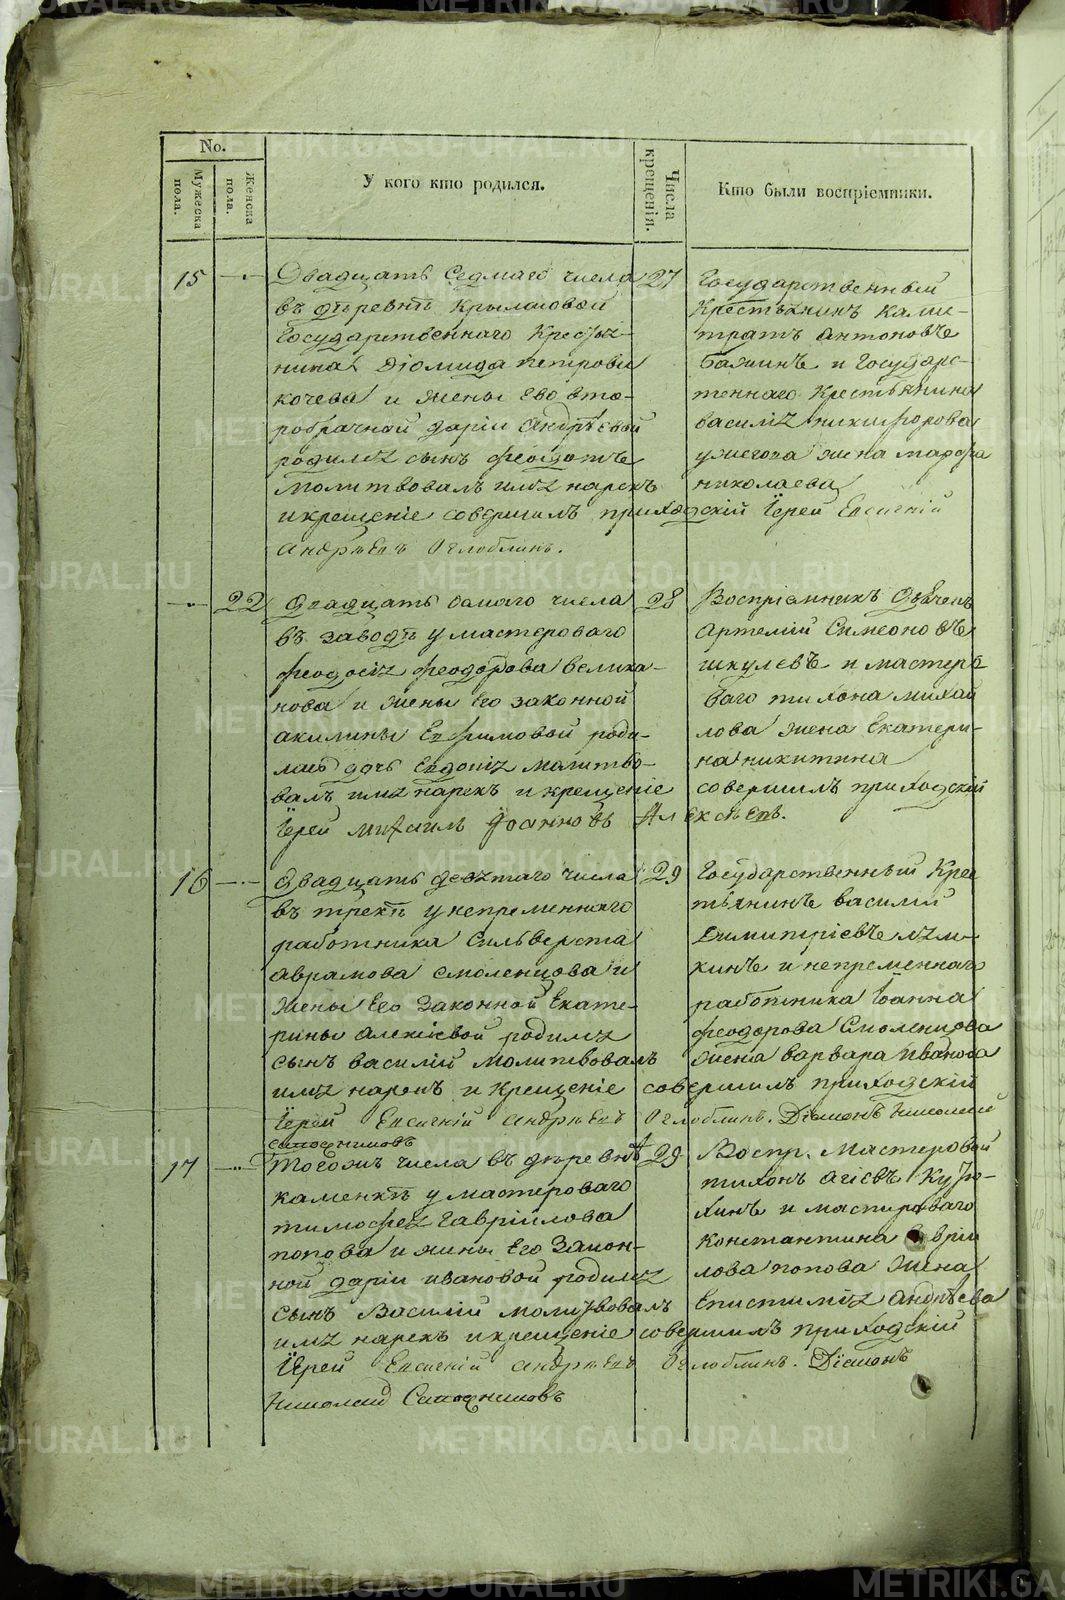 METRIKI.GASO-URAL.RU
No.
Мужеска пола.
Женска пола.
У кого кто родился.
Числа крещенія.
Кто были воспріемники.
15 27
Двадцать Седмаго числа
въ деревнѣ Крыласовой
Государственнаго Кресть-
нина Діомида Петрова
кочева и жены Его вто-
робрачной Даріи Андрѣевой
родился сынъ Феодотъ
Молитвовалъ имя нарекъ
и крещеніе совершилъ приходскій Іерей Евгеній
Андрѣевъ Оглоблинъ.
Государственный
Крестьянинъ Кали-
тратъ Антоновъ
Бажинъ и Государс-
теннаго Крестьянина
василія никифорова
жена марфа
николаева
22 28
Двадцать осмаго числа
въ заводѣ у мастероваго
феодосія феодорова велика-
нова и жены Его законной
акилины Ефимовой роди-
лась дочь Евдокія молитво-
валъ имя нарекъ и крещеніе
Іерей михаилъ Іоанновъ Алексѣевъ.
Воспріемникъ
Артемій Симеоновъ
шкулевъ и мастеро
ваго тихона михай
лова жена Екатери-
на никитина
совершилъ приходскій
16 29
Двадцать девятаго числа
въ трекѣ у непременнаго
работника Сильверста
Аврамова смоленцова и
жены Его Законной Екате-
рины Алексіевой родился
сынъ василій Молитвовалъ
имя нарекъ и Крещеніе совершилъ приходскій
Іерей Евгеній Андрѣевъ Оглоблинъ. Діаконъ Николай
Сапожниковъ
Государственный Крес
тьянинъ василій
Димитріевъ
и непременнаго
работника Іоанна
феодорова Смоленцова
жена варвара Иванова
17 29
Тогожъ числа въ деревнѣ
каменкѣ у мастероваго
тимофея Гавріилова
попова и жены Его Закон-
ной Даріи ивановой родился
сынъ Василій молитвовалъ
имя нарекъ и крещеніе совершилъ приходскій
Іерей Евгеній Андрѣевъ Оглоблинъ. Діаконъ
Николай Сапожниковъ
Воспр. Мастеровой
тихонъ Агіевъ Кузю-
хинъ и мастероваго
Константина Гаврии
лова попова жена
Епистимія Андрѣева